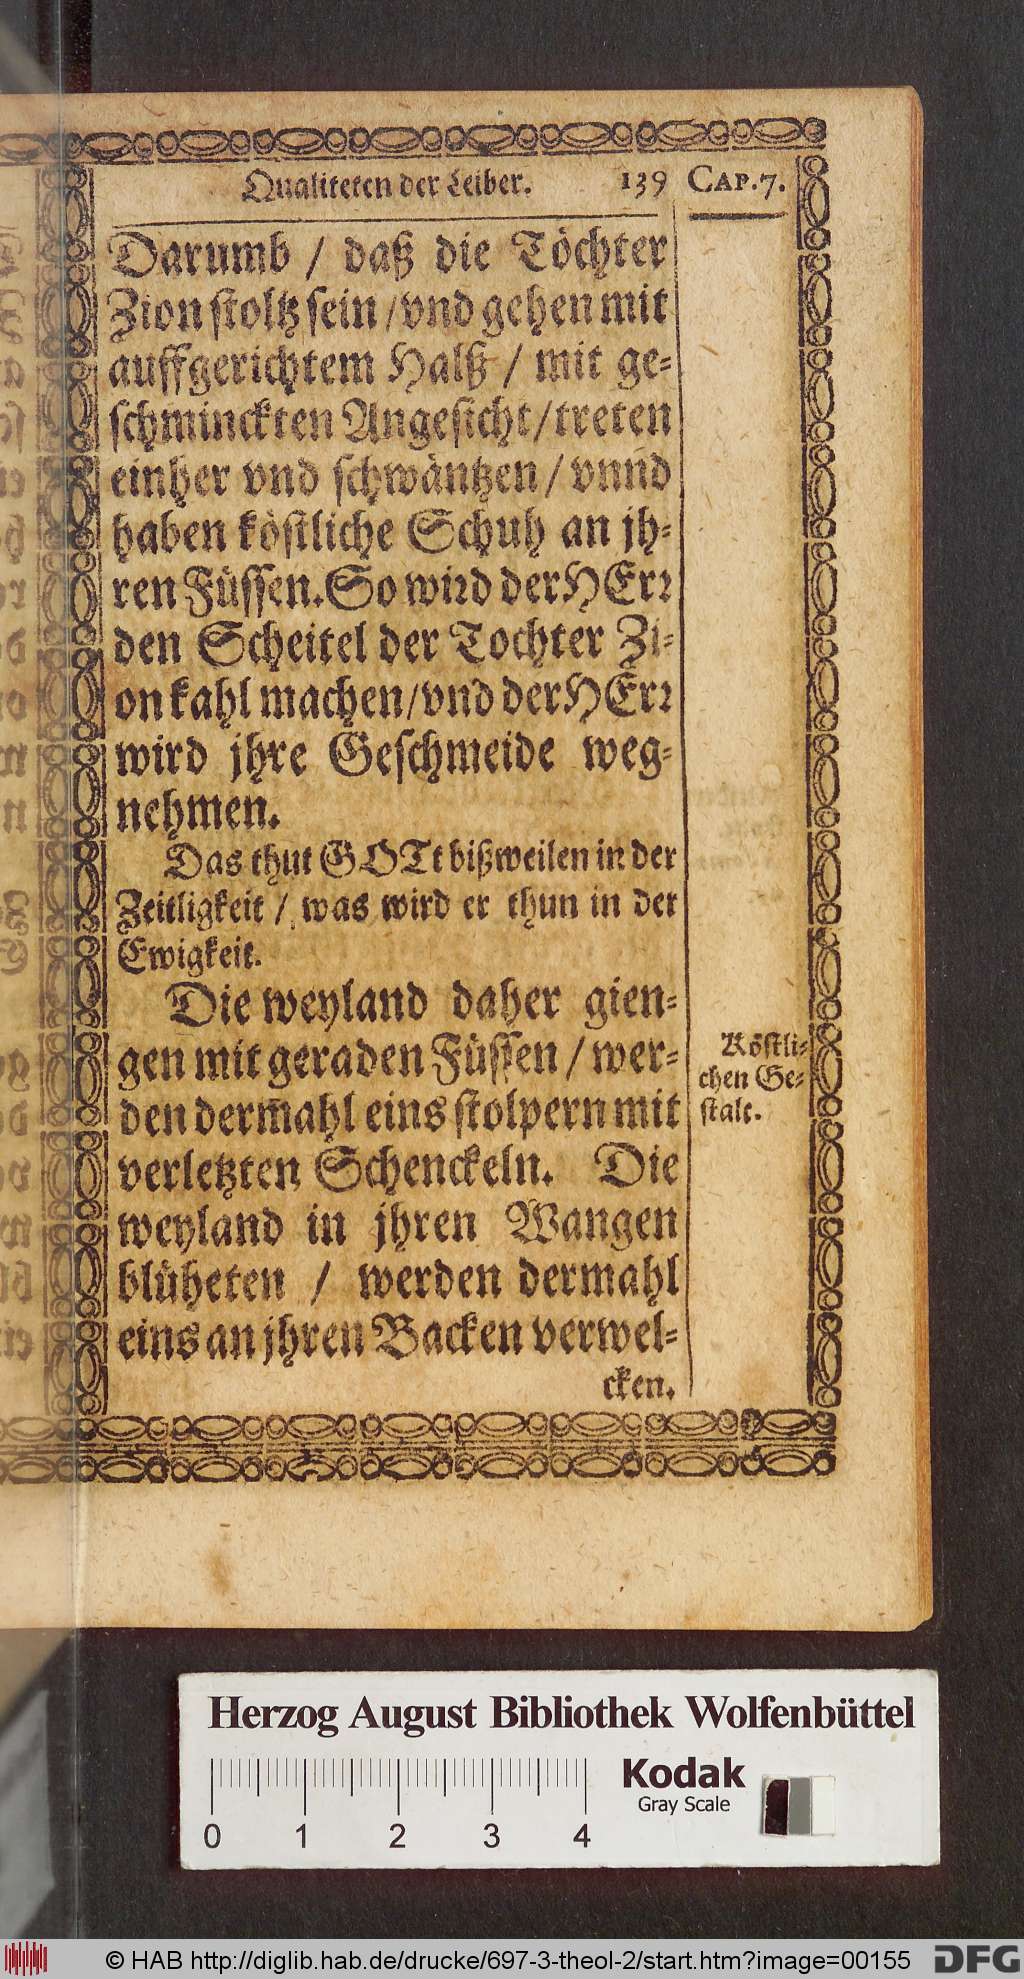 Qualiteten der Leiber. 139 CAP.7.
Darumb / daß die Töchter
Zion stoltz sein / vnd gehen mit
auffgerichtem Halß / mit ge-
schminckten Angesicht / treten
einher vnd schwäntzen / vnnd
haben köstliche Schuh an jh-
ren Füssen. So wird der HErr
den Scheitel der Tochter Zi-
on kahl machen / vnd der HErr
wird jhre Geschmeide weg-
nehmen.
Das thut GOTt bißweilen in der
Zeitligkeit / was wird er thun in der
Ewigkeit.
Die weyland daher gien-
gen mit geraden Füssen / wer-
den dermahl eins stolpern mit
verletzten Schenckeln. Die
weyland in jhren Wangen
blüheten / werden dermahl
eins an jhren Backen verwel-
cken.
Köstli-
chen Ge-
stalt.
Herzog August Bibliothek Wolfenbüttel
0 1 2 3 4
Kodak
Gray Scale
© HAB http://diglib.hab.de/drucke/697-3-theol-2/start.htm?image=00155
DFG